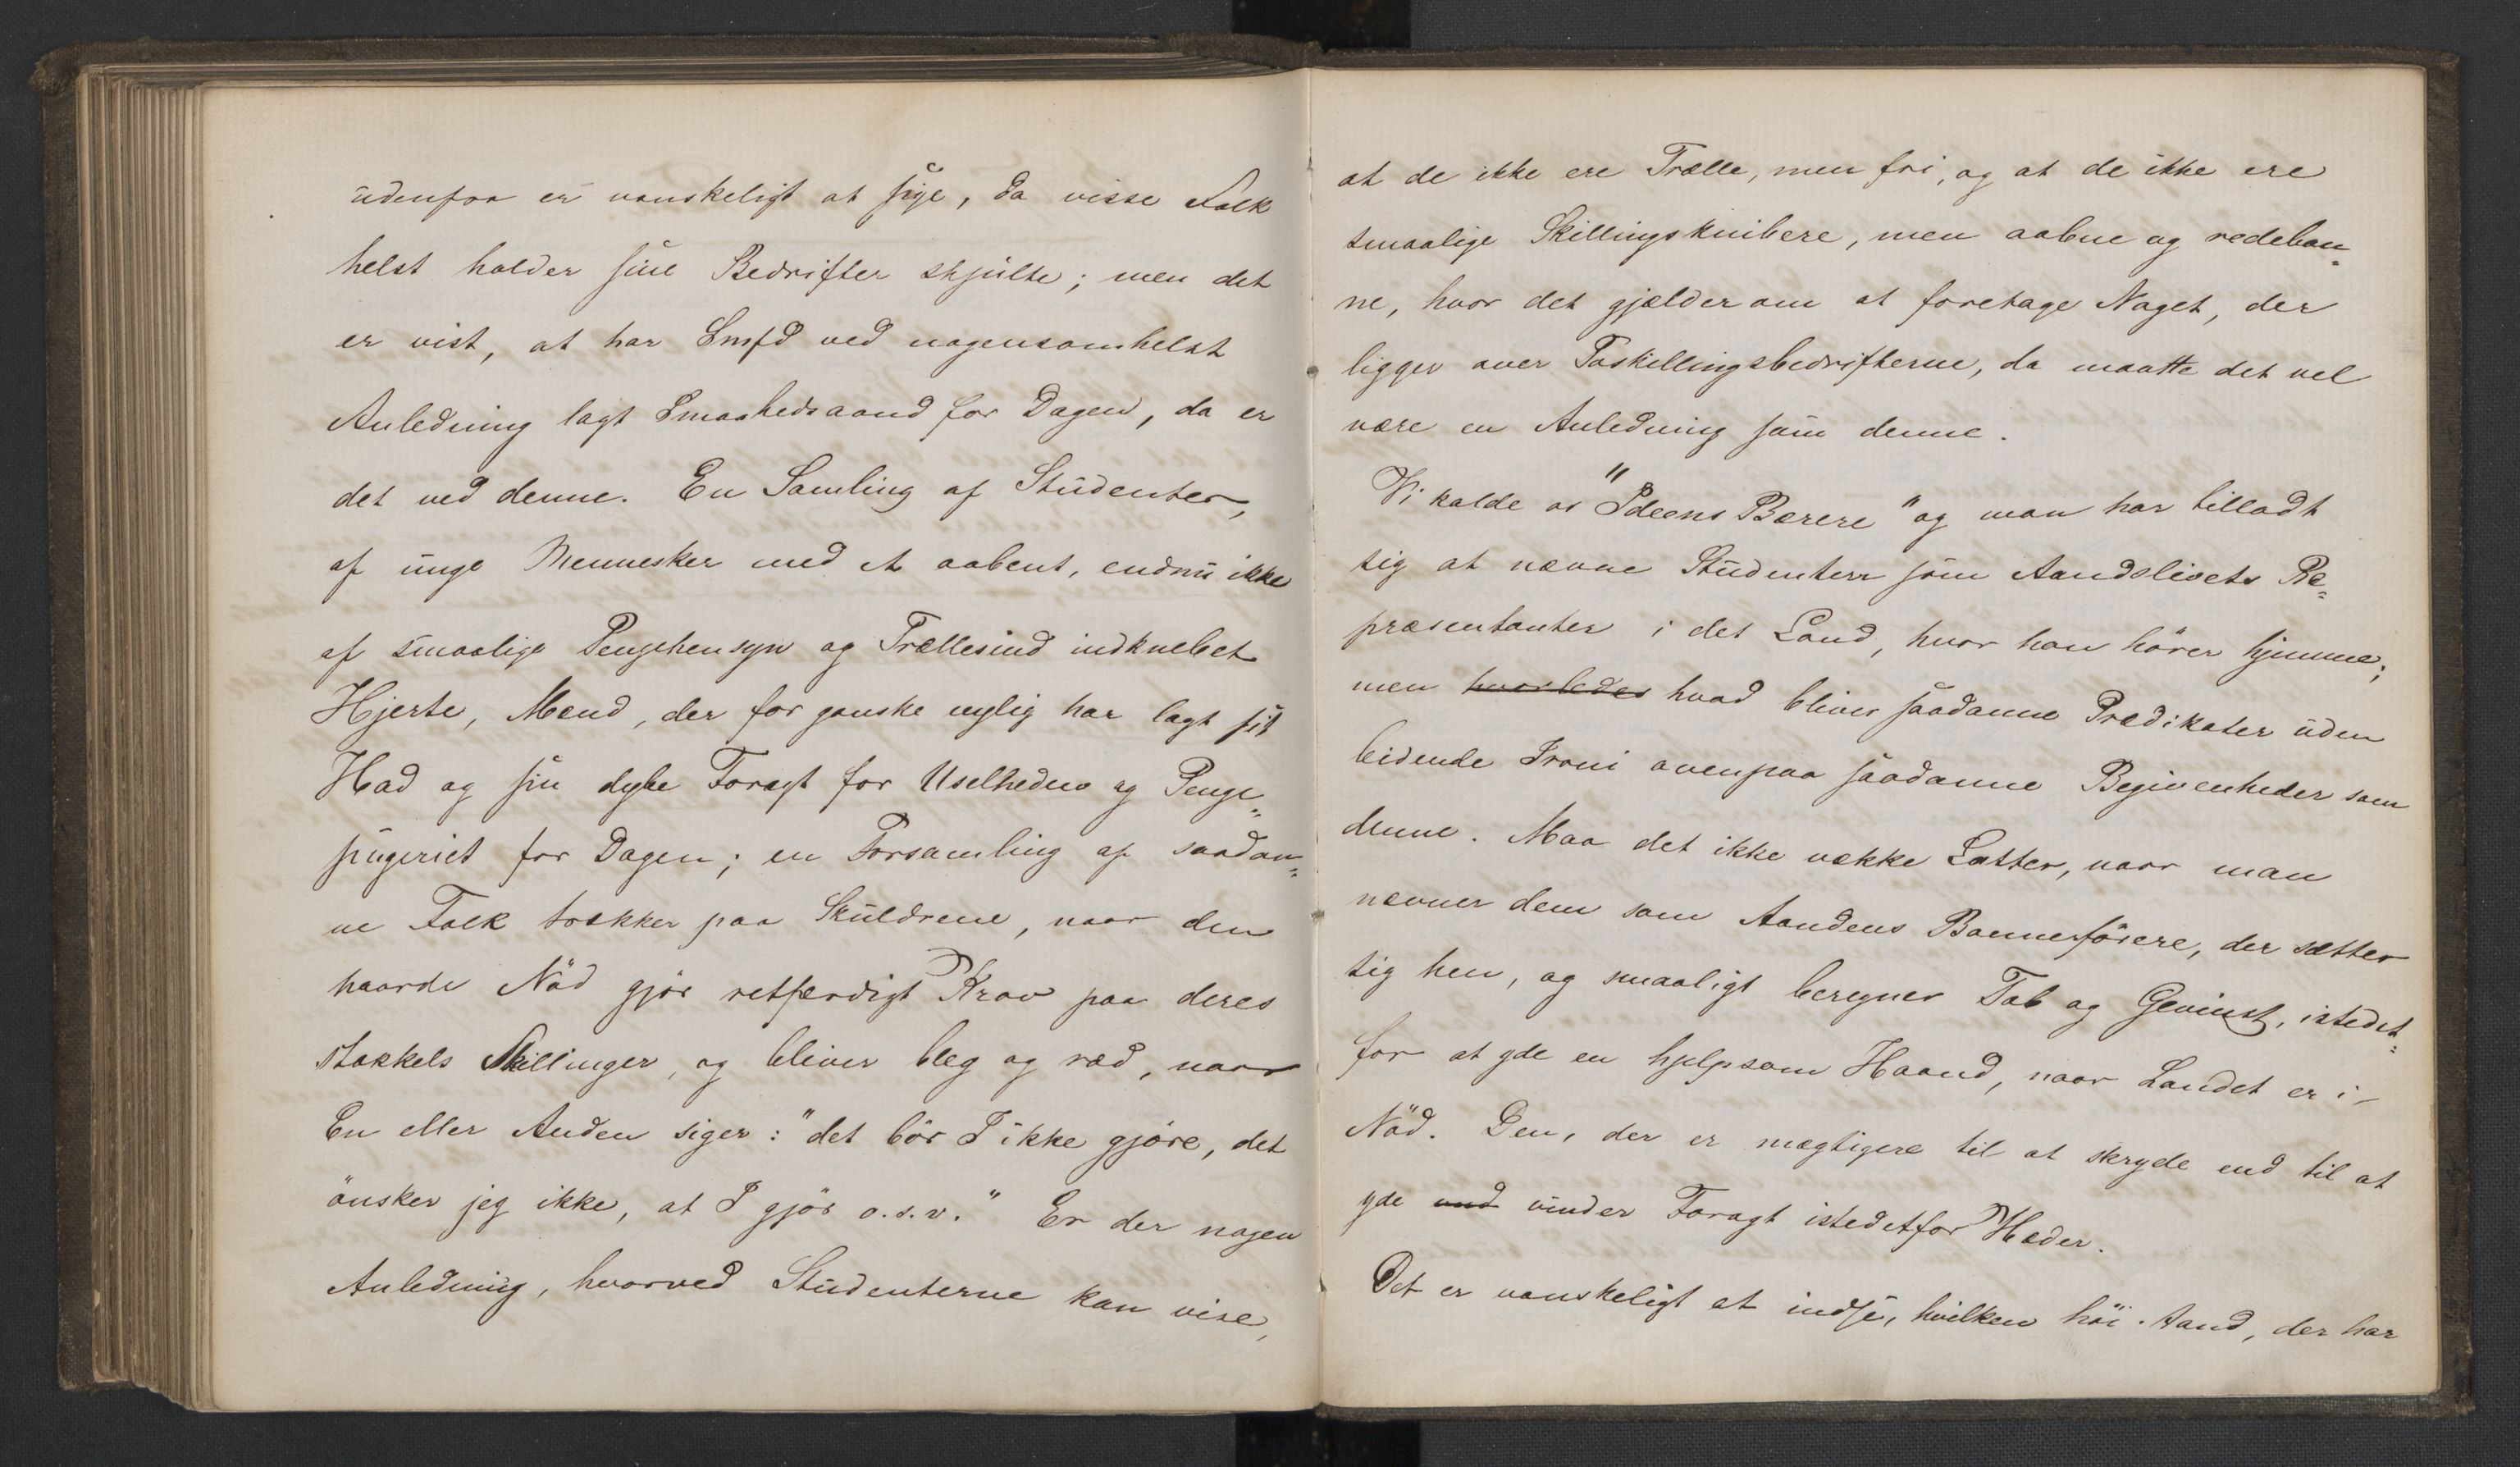 udenfra er vanskeligt at sige, da visse Folk
helst holder sine Bedrifter skjulte; men det
er vist, at har Smfd ved nogensomhelst
Anledning lagt Smaahedsaand for Dagen, da er
det ved denne. En Samling af Studenter,
af unge Mennesker med et aabent, endnu ikke
af smaalige Pengehensyn og Trællesind indknebet
Hjerte, Mænd, der for ganske nylig har lagt sit
Had og sin dybe Foragt for Uselheden og Penge-
pugeriet for Dagen; en Forsamling af saadan-
ne Folk trækker paa Skuldrene, naar den
haarde Nöd gjör retfærdigt Krav paa deres
stakkels Skillinger, og bliver bleg og ræd, naar
En eller Anden siger: "det bör I ikke gjöre, det
önsker jeg ikke, at I gjör o.s.v." Er der nogen
Anledning, hvorved Studenterne kan vise,
at de ikke ere Trælle, men fri, og at de ikke ere
smaalige Skillingsknibere, men aabne og redebon-
ne, hvor det gjælder om at foretage Noget, der
ligger over Toskillingsbedrifterne, da maatte det vel
være en Anledning som denne.
Vi kalde os "Ideens Bærere" og man har tilladt
sig at nævne Studenten som Aandslivets Re-
præsentanter i det Land, hvor han hörer hjemme;
men hvorledes hvad bliver saadanne Prædikater uden
bidende Ironi ovenpaa saadanne Begivenheder som
denne. Maa det ikke vække Latter, naar man
nævner dem som Aandens Bannerförere, der sætter
sig hen, og smaaligt beregner Tab og Gevinst, istedet-
for at yde en hjelpsom Haand, naar Landet er i
Nöd. Den, der er mægtigere til at skryde end til at
yde und vinder Foragt istedetfor Hæder.
Det er vanskeligt at indse, hvilken höi Aand, der har